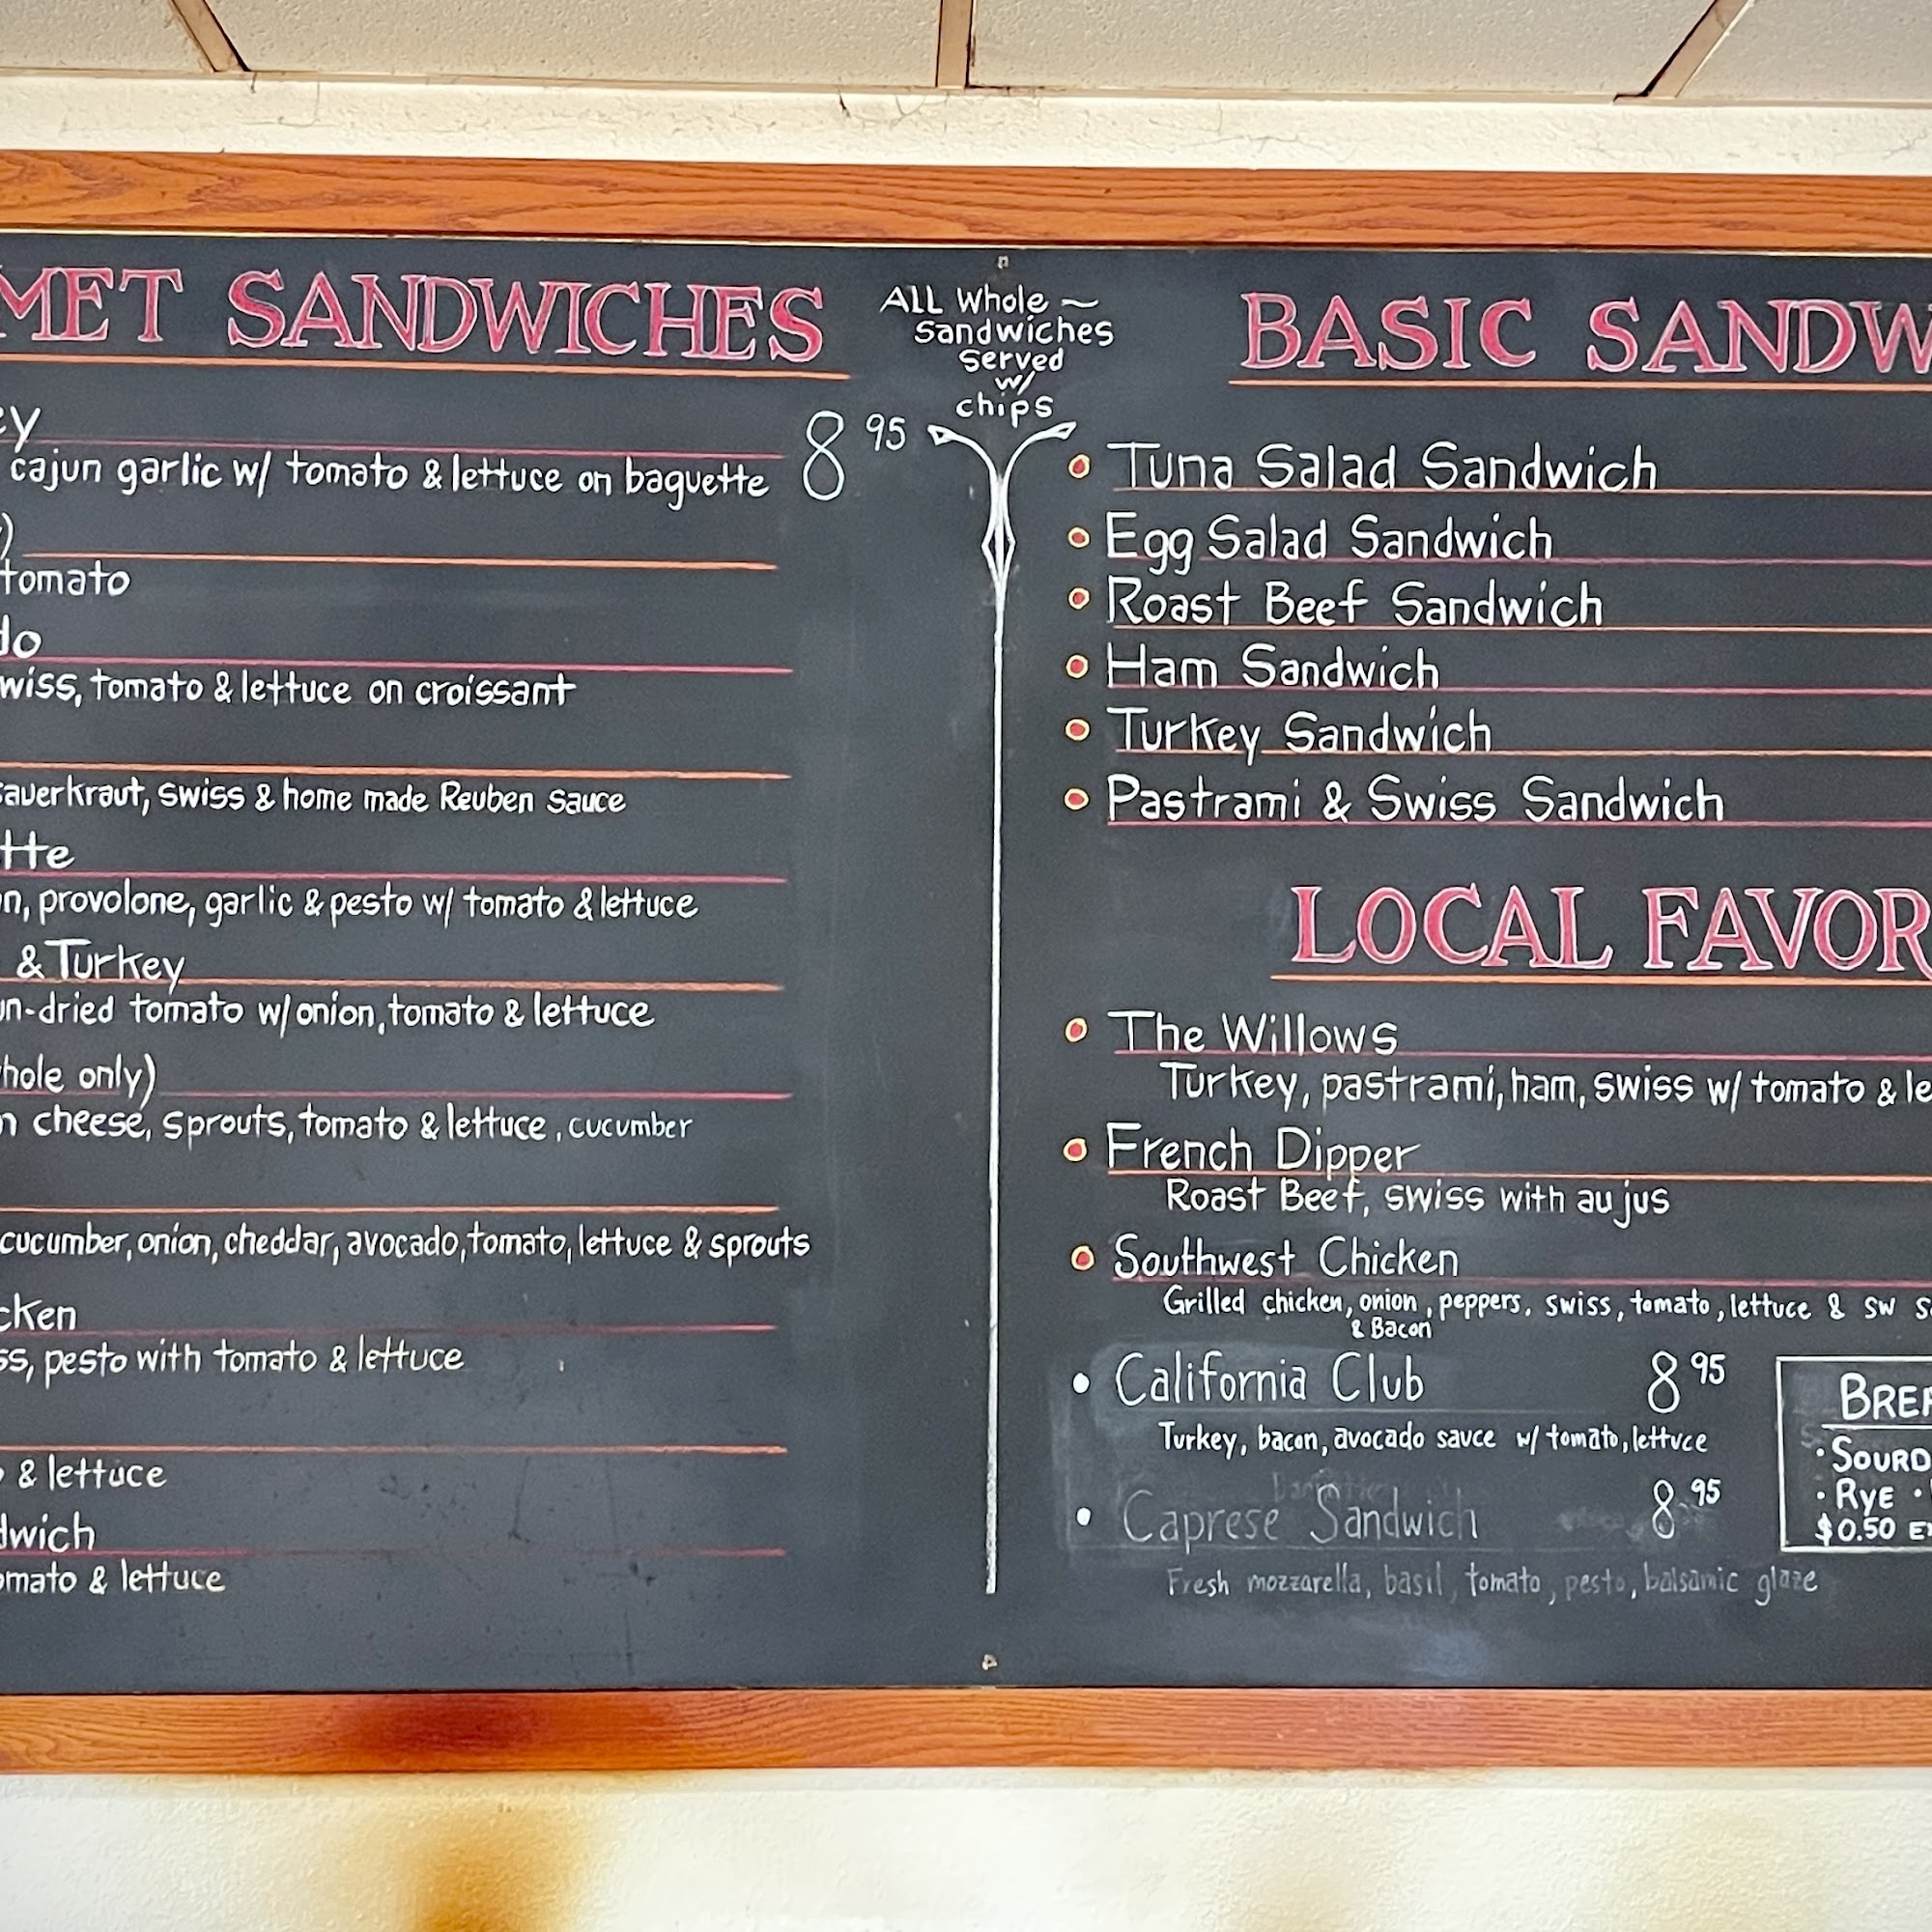 MET SANDWICHES
ey 8 95
cajun garlic w/ tomato & lettuce on baguette
)
tomato
do
wiss, tomato & lettuce on croissant
sauerkraut, swiss & home made Reuben sauce
tte
n, provolone, garlic & pesto w/ tomato & lettuce
& Turkey
un-dried tomato w/ onion, tomato & lettuce
hole only)
n cheese, sprouts, tomato & lettuce, cucumber
cucumber, onion, cheddar, avocado, tomato, lettuce & sprouts
cken
ss, pesto with tomato & lettuce
& lettuce
dwich
omato & lettuce
ALL Whole ~
Sandwiches
Served
w/
chips
BASIC SANDW
• Tuna Salad Sandwich
• Egg Salad Sandwich
• Roast Beef Sandwich
• Ham Sandwich
• Turkey Sandwich
• Pastrami & Swiss Sandwich
LOCAL FAVOR
• The Willows
Turkey, pastrami, ham, swiss w/ tomato & le
• French Dipper
Roast Beef, swiss with au jus
• Southwest Chicken
Grilled chicken, onion, peppers, swiss, tomato, lettuce & sw s
& Bacon
• California Club 8 95
Turkey, bacon, avocado sauce w/ tomato, lettuce
• Caprese Sandwich 8 95
Fresh mozzarella, basil, tomato, pesto, balsamic glaze
BREA
• SOURD
• RYE •
$0.50 E